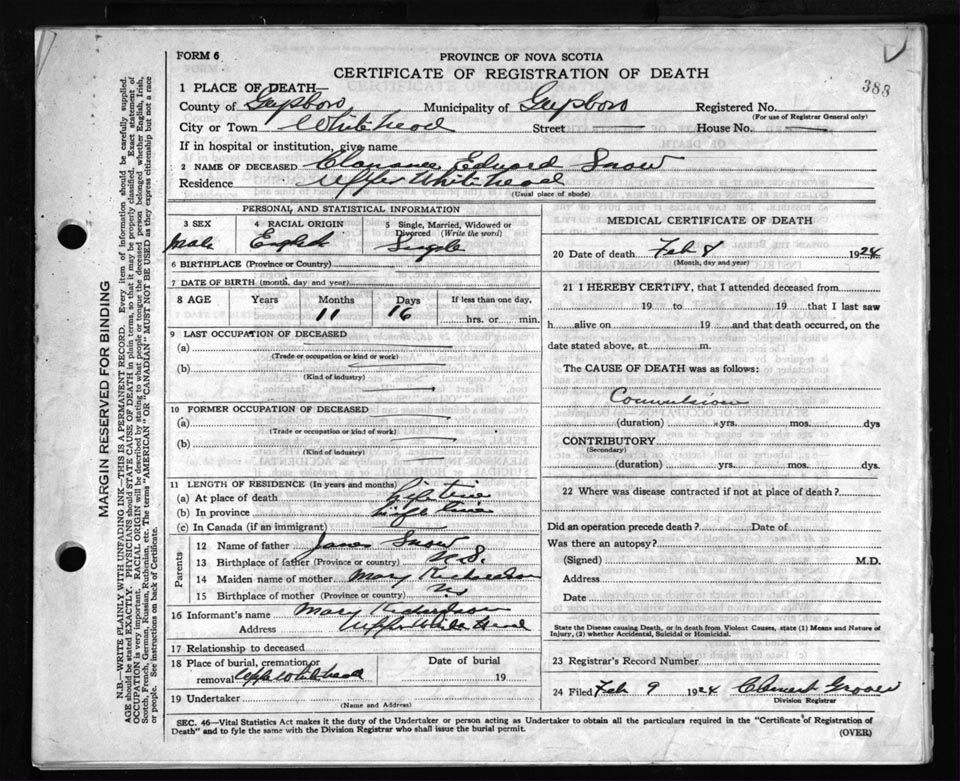 FORM 6
PROVINCE OF NOVA SCOTIA
CERTIFICATE OF REGISTRATION OF DEATH
388
1 PLACE OF DEATH—
County of Guysboro Municipality of Guysboro Registered No.
(For use of Registrar General only)
City or Town Whitehead Street — House No. —
If in hospital or institution, give name
2 NAME OF DECEASED Clarance Edward Snow
Residence Upper Whitehead
(Usual place of abode)
PERSONAL AND STATISTICAL INFORMATION
3 SEX 4 RACIAL ORIGIN 5 Single, Married, Widowed or Divorced (Write the word)
Male English Single
6 BIRTHPLACE (Province or Country)
7 DATE OF BIRTH (month, day and year)
8 AGE Years Months Days If less than one day,
11 16 hrs. or min.
9 LAST OCCUPATION OF DECEASED
(a)
(Trade or occupation or kind or work)
(b)
(Kind of industry)
10 FORMER OCCUPATION OF DECEASED
(a)
(Trade or occupation or kind of work)
(b)
(Kind of industry)
11 LENGTH OF RESIDENCE (In years and months)
(a) At place of death Life time
(b) In province Life time
(c) In Canada (if an immigrant)
Parents
12 Name of father James Snow
13 Birthplace of father (Province or country) N.S.
14 Maiden name of mother Mary Richardson
15 Birthplace of mother (Province or country)
16 Informant's name Mary Richardson
Address Upper White Head
17 Relationship to deceased
18 Place of burial, cremation or removal Upper Whitehead Date of burial 19
19 Undertaker
(Name and Address)
MEDICAL CERTIFICATE OF DEATH
20 Date of death Feb 8 1924
(Month, day and year)
21 I HEREBY CERTIFY, that I attended deceased from
19 to 19 that I last saw
h alive on 19 and that death occurred, on the
date stated above, at m.
The CAUSE OF DEATH was as follows:
Convulsions
(duration) yrs. mos. dys
CONTRIBUTORY
(Secondary)
(duration) yrs. mos. dys.
22 Where was disease contracted if not at place of death?
Did an operation precede death? Date of
Was there an autopsy?
(Signed) M.D.
Address
Date
State the Disease causing Death, or in death from Violent Causes, state (1) Means and Nature of
Injury, (2) whether Accidental, Suicidal or Homicidal.
23 Registrar's Record Number
24 Filed Feb 9 1924
Division Registrar
SEC. 46—Vital Statistics Act makes it the duty of the Undertaker or person acting as Undertaker to obtain all the particulars required in the "Certificate of Registration of
Death" and to fyle the same with the Division Registrar who shall issue the burial permit.
(OVER)
MARGIN RESERVED FOR BINDING
N.B.—WRITE PLAINLY WITH UNFADING INK—THIS IS A PERMANENT RECORD. Every item of information should be carefully supplied.
AGE should be stated EXACTLY. PHYSICIANS should STATE CAUSE OF DEATH in plain terms, so that it may be properly classified. Exact statement of
OCCUPATION is very important. RACIAL ORIGIN will be described by stating to what people or tongue the deceased person belonged whether English, Irish,
Scotch, French, German, Russian, Ruthenian, etc. The terms "AMERICAN" OR "CANADIAN" MUST NOT BE USED as they express citizenship but not a race
or people. See instructions on back of Certificate.